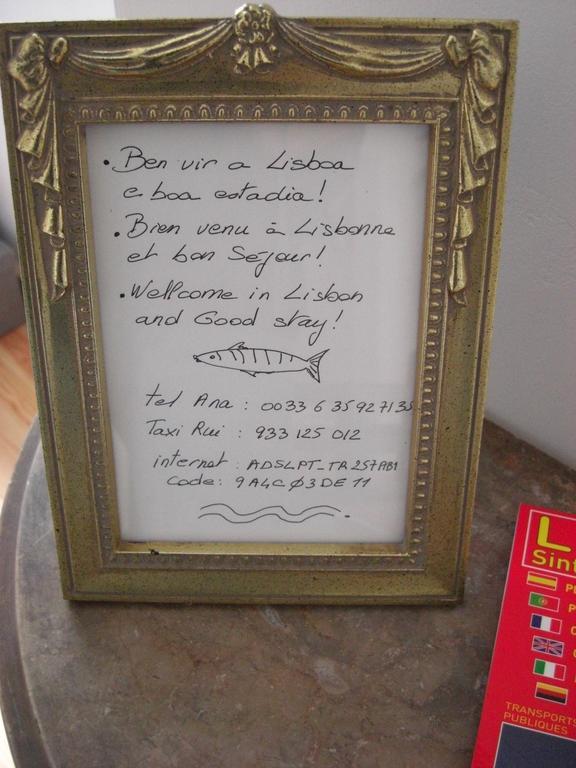 • Ben vir a Lisboa
e boa estadia!
• Bien venu à Lisbonne
et bon Séjour!
• Wellcome in Lisbon
and Good stay!
tel Ana : 0033 6 35 92 71 38
Taxi Rui : 933 125 012
internet : ADSLPT_TR257AB1
Code: 9A4CØ3DE11
L
Sint
TRANSPORTS
PUBLIQUES